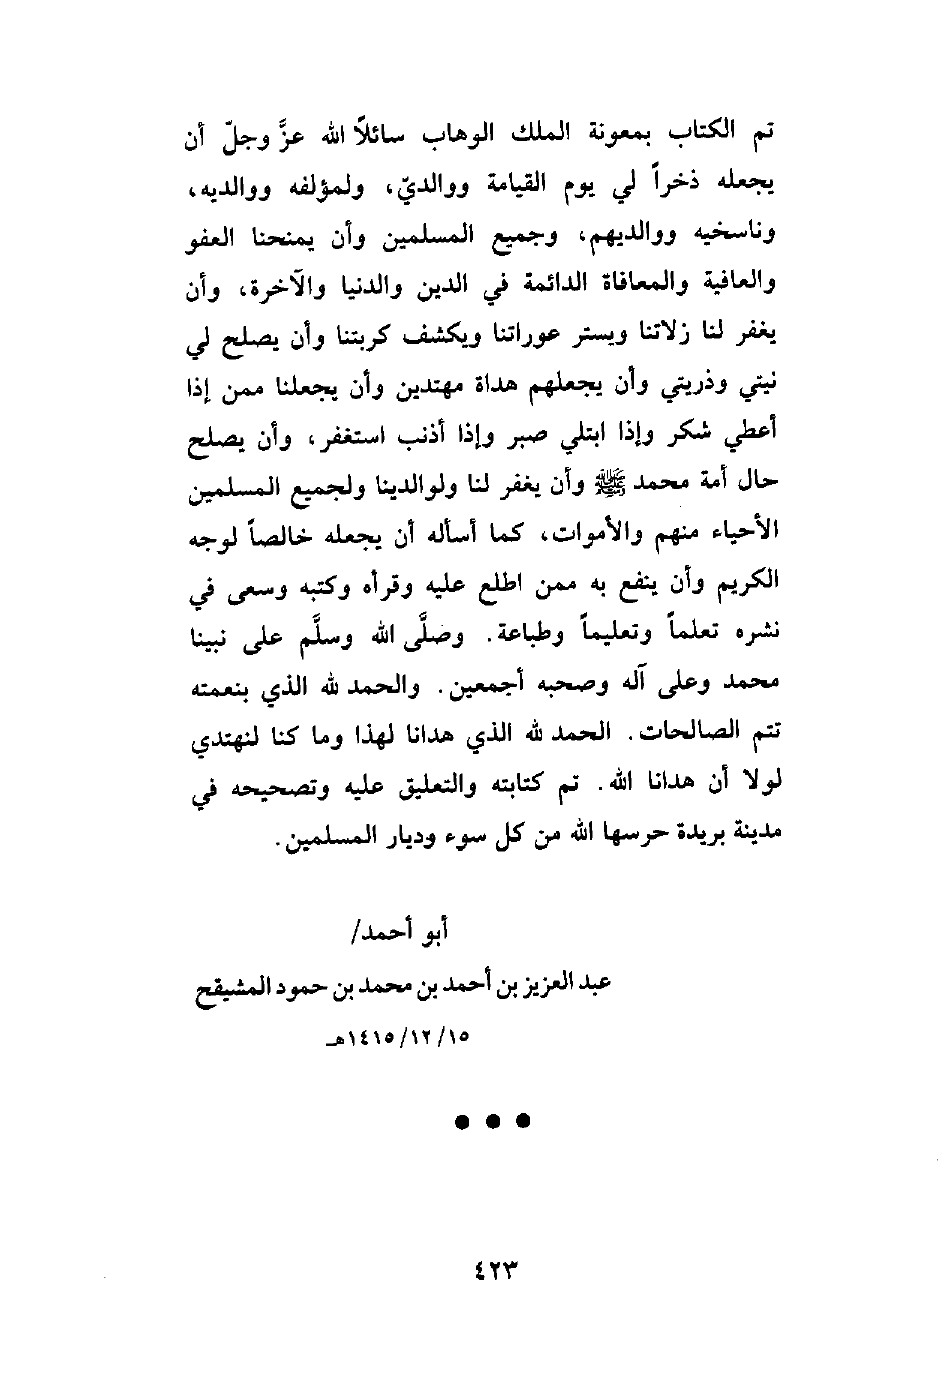 تم الكتاب بمعونة الملك الوهاب سائلاً الله عزَّ وجلّ أن
يجعله ذخراً لي يوم القيامة ووالديّ، ولمؤلفه ووالديه،
وناسخيه ووالديهم، وجميع المسلمين وأن يمنحنا العفو
والعافية والمعافاة الدائمة في الدين والدنيا والآخرة، وأن
يغفر لنا زلاتنا ويستر عوراتنا ويكشف كربتنا وأن يصلح لي
نيتي وذريتي وأن يجعلهم هداة مهتدين وأن يجعلنا ممن إذا
أعطي شكر وإذا ابتلي صبر وإذا أذنب استغفر، وأن يصلح
حال أمة محمد ﷺ وأن يغفر لنا ولوالدينا ولجميع المسلمين
الأحياء منهم والأموات، كما أسأله أن يجعله خالصاً لوجه
الكريم وأن ينفع به ممن اطلع عليه وقرأه وكتبه وسعى في
نشره تعلماً وتعليماً وطباعة. وصلَّى الله وسلَّم على نبينا
محمد وعلى آله وصحبه أجمعين. والحمد لله الذي بنعمته
تتم الصالحات. الحمد لله الذي هدانا لهذا وما كنا لنهتدي
لولا أن هدانا الله. تم كتابته والتعليق عليه وتصحيحه في
مدينة بريدة حرسها الله من كل سوء وديار المسلمين.
أبو أحمد/
عبد العزيز بن أحمد بن محمد بن حمود المشيقح
١٤١٥/١٢/١٥هـ
٤٢٣